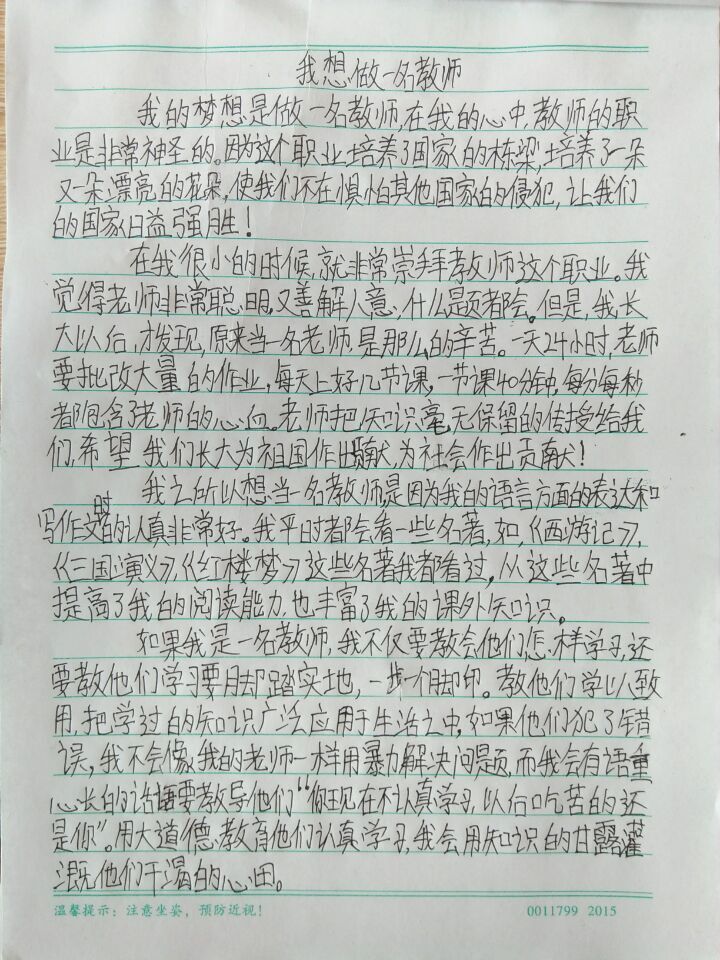 我想做一名教师
我的梦想是做一名教师,在我的心中,教师的职
业是非常神圣的。因为这个职业,培养了国家的栋梁,培养了一朵
又一朵漂亮的花朵,使我们不在惧怕其他国家的侵犯,让我们
的国家日益强胜!
在我很小的时候,就非常崇拜教师这个职业。我
觉得老师非常聪明,又善解人意,什么题都会。但是,我长
大以后,才发现,原来当一名老师,是那么的辛苦。一天24小时,老师
要批改大量的作业,每天上好几节课,一节课40分钟,每分每秒
都包含了老师的心血。老师把知识毫无保留的传授给我
们,希望我们长大为祖国作出贡献,为社会作出贡献!
我之所以想当一名教师,是因为我的语言方面的表达和
写作文时的认真非常好。我平时都会看一些名著,如,《西游记》,
《三国演义》,《红楼梦》这些名著我都看过,从这些名著中
提高了我的阅读能力,也丰富了我的课外知识。
如果我是一名教师,我不仅要教会他们怎样学习,还
要教他们学习要脚踏实地,一步一个脚印。教他们学以致
用,把学过的知识广泛应用于生活之中,如果他们犯了错
误,我不会像我的老师一样用暴力解决问题,而我会有语重
心长的话语要教导他们“你现在不认真学习,以后吃苦的还
是你”。用大道德教育他们认真学习,我会用知识的甘露灌
溉他们干渴的心田。
温馨提示:注意坐姿,预防近视!
0011799 2015